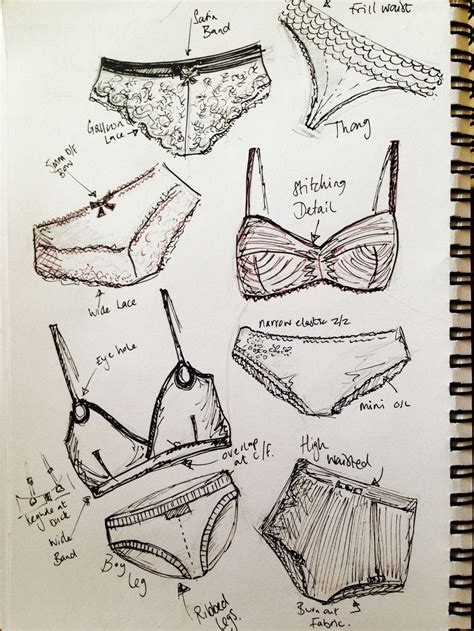 Satin
Band
Frill waist
Galloon
Lace
Thong
5mm D/F
Bow
Stitching
Detail
Wide Lace
Eye hole
narrow elastic 2/2
mini O/L
overlap
at C/F.
High
Waisted
Wide
Band
Boy
Leg
Ribbed
Legs
Burnout
Fabric.